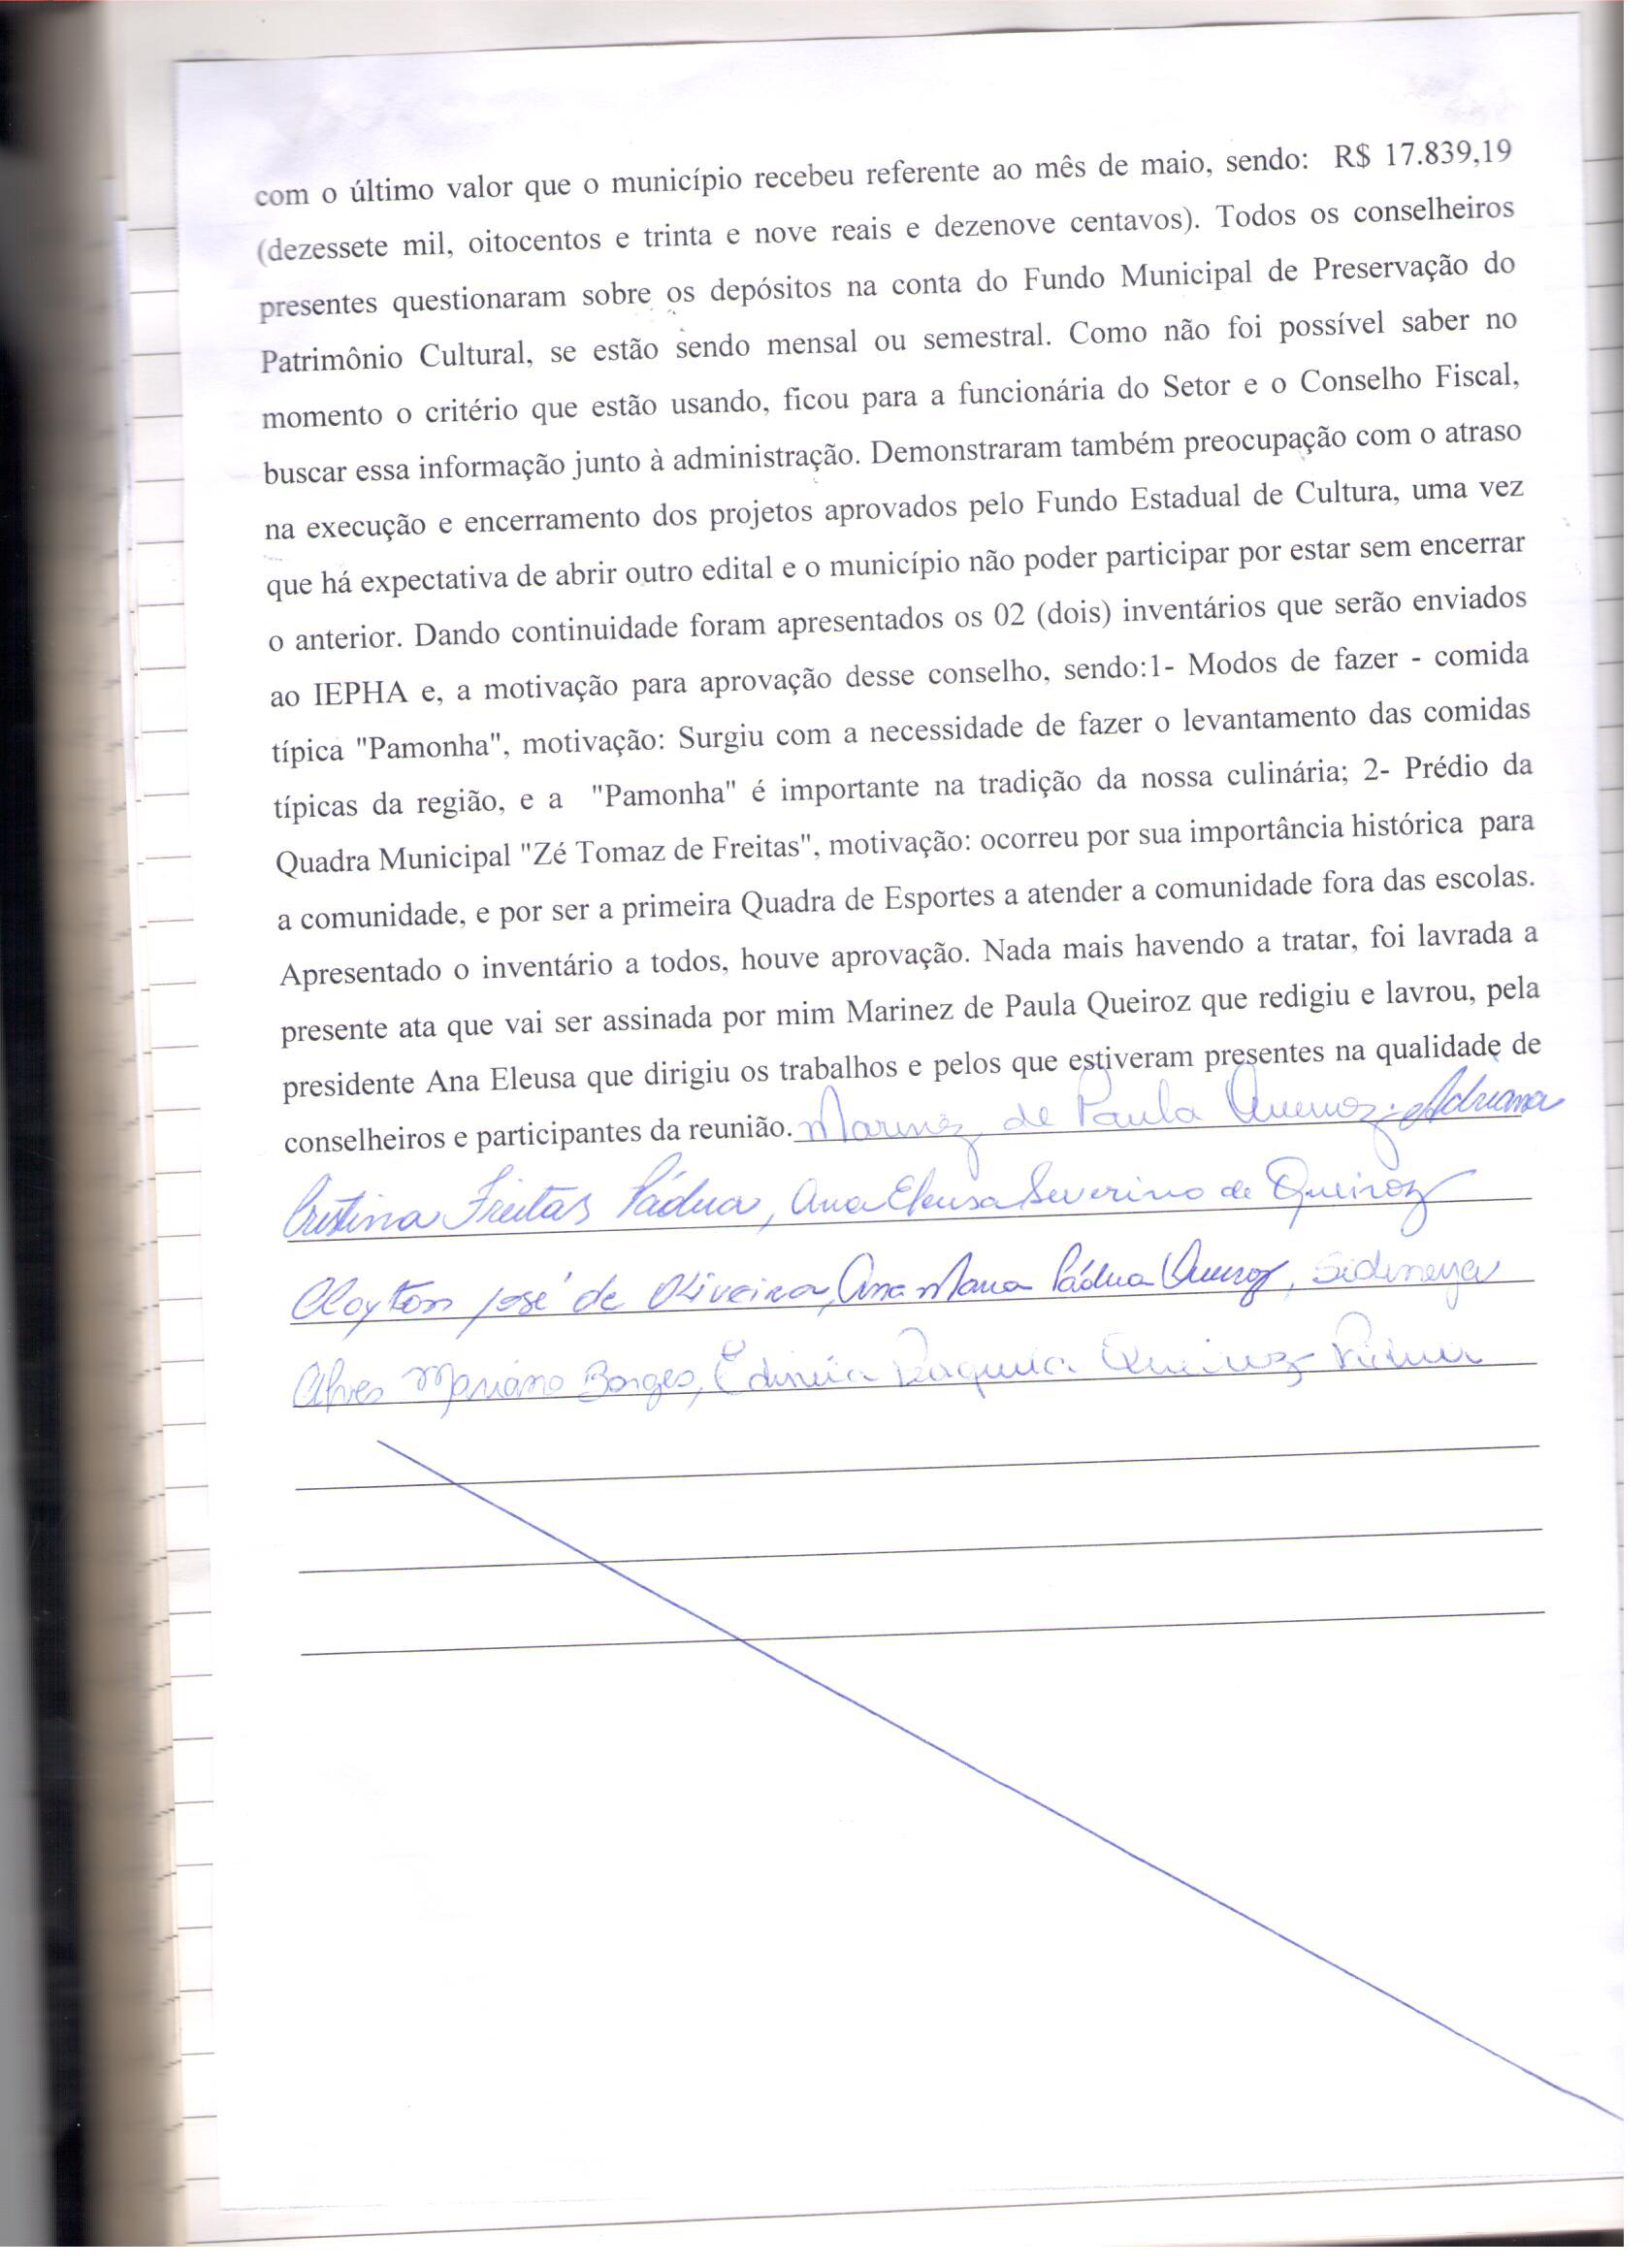 com o último valor que o município recebeu referente ao mês de maio, sendo: R$ 17.839,19
(dezessete mil, oitocentos e trinta e nove reais e dezenove centavos). Todos os conselheiros
presentes questionaram sobre os depósitos na conta do Fundo Municipal de Preservação do
Patrimônio Cultural, se estão sendo mensal ou semestral. Como não foi possível saber no
momento o critério que estão usando, ficou para a funcionária do Setor e o Conselho Fiscal,
buscar essa informação junto à administração. Demonstraram também preocupação com o atraso
na execução e encerramento dos projetos aprovados pelo Fundo Estadual de Cultura, uma vez
que há expectativa de abrir outro edital e o município não poder participar por estar sem encerrar
o anterior. Dando continuidade foram apresentados os 02 (dois) inventários que serão enviados
ao IEPHA e, a motivação para aprovação desse conselho, sendo:1- Modos de fazer - comida
típica "Pamonha", motivação: Surgiu com a necessidade de fazer o levantamento das comidas
típicas da região, e a "Pamonha" é importante na tradição da nossa culinária; 2- Prédio da
Quadra Municipal "Zé Tomaz de Freitas", motivação: ocorreu por sua importância histórica para
a comunidade, e por ser a primeira Quadra de Esportes a atender a comunidade fora das escolas.
Apresentado o inventário a todos, houve aprovação. Nada mais havendo a tratar, foi lavrada a
presente ata que vai ser assinada por mim Marinez de Paula Queiroz que redigiu e lavrou, pela
presidente Ana Eleusa que dirigiu os trabalhos e pelos que estiveram presentes na qualidade de
conselheiros e participantes da reunião. Marinez de Paula Queiroz. Adriana
Cristina Freitas Pádua, Ana Eleusa Severino de Queiroz
Clayton José de Oliveira, Ana Maria Pádua Queiroz, Sidineya
Alves Mariano Borges, Edinéia Queiroz